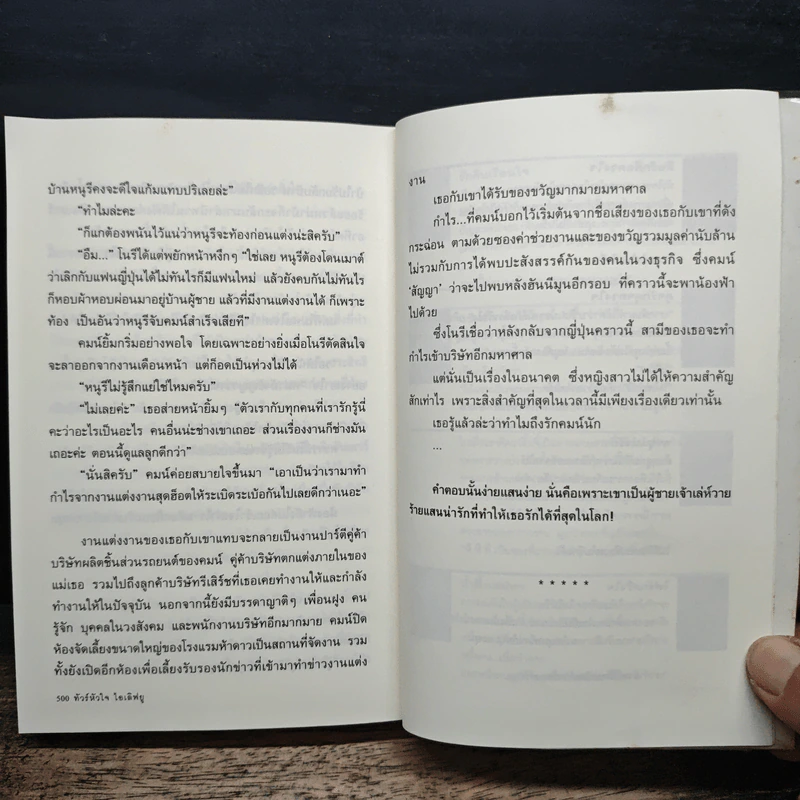 บ้านหนูรีคงจะดีใจแก้มแทบปริเลยล่ะ”
“ทำไมล่ะคะ
“ก็แกต้องพนันไว้แน่ว่าหนูรีจะท้องก่อนแต่งน่ะสิครับ”
“อืม...” โนรีได้แต่พยักหน้าหงึกๆ “ใช่เลย หนูรีต้องโดนเมาต์
ว่าเลิกกับแฟนญี่ปุ่นได้ไม่ทันไรก็มีแฟนใหม่ แล้วยังคบกันไม่ทันไร
ก็หอบผ้าหอบผ่อนมาอยู่บ้านผู้ชาย แล้วที่มีงานแต่งงานได้ ก็เพราะ
ท้อง เป็นอันว่าหนูรีจับคมน์สำเร็จเสียที”
คมน์ยิ้มกริ่มอย่างพอใจ โดยเฉพาะอย่างยิ่งเมื่อโนรีตัดสินใจ
จะลาออกจากงานเดือนหน้า แต่ก็อดเป็นห่วงไม่ได้
“หนูรีไม่รู้สึกแย่ใช่ไหมครับ”
“ไม่เลยค่ะ” เธอส่ายหน้ายิ้มๆ “ตัวเรากับทุกคนที่เรารักรู้นี่
คะว่าอะไรเป็นอะไร คนอื่นน่ะช่างเขาเถอะ ส่วนเรื่องงานก็ช่างมัน
เถอะค่ะ ตอนนี้ดูแลลูกดีกว่า”
“นั่นสิครับ” คมน์ค่อยสบายใจขึ้นมา “เอาเป็นว่าเรามาทำ
กำไรจากงานแต่งงานสุดฮ็อตให้ระเบิดระเบ้อกันไปเลยดีกว่าเนอะ”
งานแต่งงานของเธอกับเขาแทบจะกลายเป็นงานปาร์ตีคู่ค้า
บริษัทผลิตชิ้นส่วนรถยนต์ของคมน์ คู่ค้าบริษัทตกแต่งภายในของ
แม่เธอ รวมไปถึงลูกค้าบริษัทรีเสิร์ชที่เธอเคยทำงานให้และกำลัง
ทำงานให้ในปัจจุบัน นอกจากนี้ยังมีบรรดาญาติๆ เพื่อนฝูง คน
รู้จัก บุคคลในวงสังคม และพนักงานบริษัทอีกมากมาย คมน์ปิด
ห้องจัดเลี้ยงขนาดใหญ่ของโรงแรมห้าดาวเป็นสถานที่จัดงาน รวม
ทั้งยังเปิดอีกห้องเพื่อเลี้ยงรับรองนักข่าวที่เข้ามาทำข่าวงานแต่ง
500 ทัวร์หัวใจ ไอเลิฟยู
งาน
เธอกับเขาได้รับของขวัญมากมายมหาศาล
กำไร...ที่คมน์บอกไว้เริ่มต้นจากชื่อเสียงของเธอกับเขาที่ดัง
กระฉ่อน ตามด้วยซองค่าช่วยงานและของขวัญรวมมูลค่านับล้าน
ไม่รวมกับการได้พบปะสังสรรค์กันของคนในวงธุรกิจ ซึ่งคมน์
‘สัญญา’ ว่าจะไปพบหลังฮันนีมูนอีกรอบ ที่คราวนี้จะพาน้องฟ้า
ไปด้วย
ซึ่งโนรีเชื่อว่าหลังกลับจากญี่ปุ่นคราวนี้ สามีของเธอจะทำ
กำไรเข้าบริษัทอีกมหาศาล
แต่นั่นเป็นเรื่องในอนาคต ซึ่งหญิงสาวไม่ได้ให้ความสำคัญ
สักเท่าไร เพราะสิ่งสำคัญที่สุดในเวลานี้มีเพียงเรื่องเดียวเท่านั้น
เธอรู้แล้วล่ะว่าทำไมถึงรักคมน์นัก
...
คำตอบนั้นง่ายแสนง่าย นั่นคือเพราะเขาเป็นผู้ชายเจ้าเล่ห์วาย
ร้ายแสนน่ารักที่ทำให้เธอรักได้ที่สุดในโลก!
* * * * *